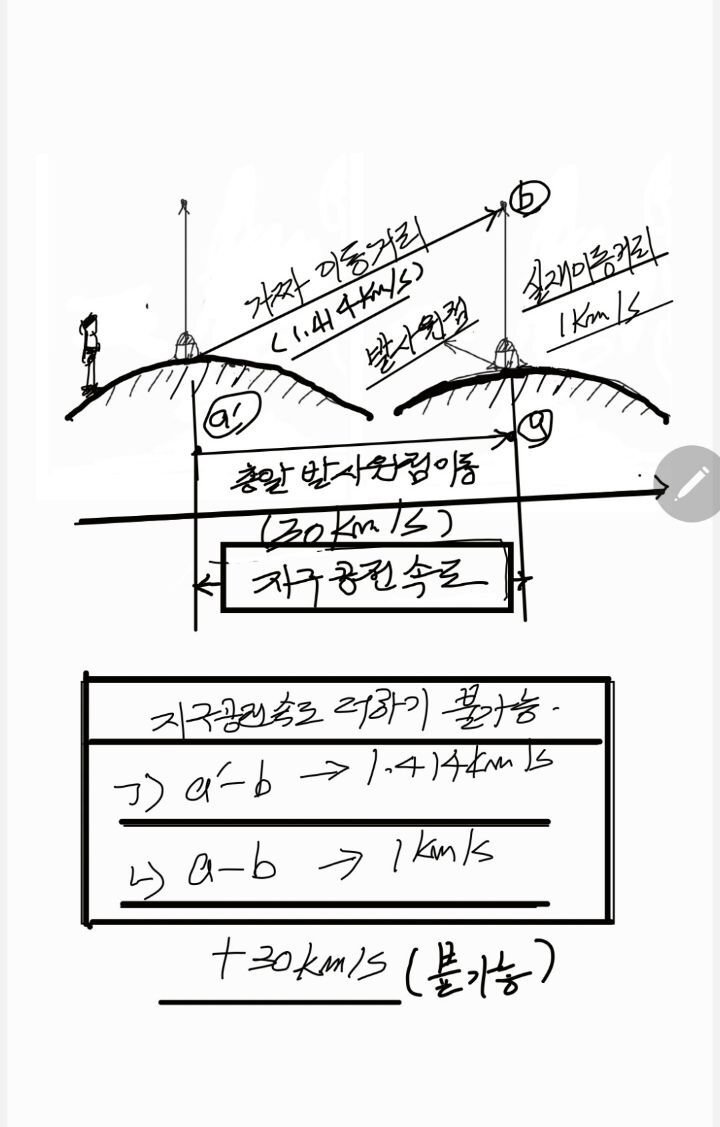 ⓑ
가짜 이동거리
(1.414km/s)
실재이동거리
1km/s
발사원점
ⓐ'
ⓐ
총알 발사원점이동
(30km/s)
지구 공전 속도
지구공전속도 더하기 불가능.
ㄱ) a'-b → 1.414km/s
ㄴ) a-b → 1km/s
+30km/s (불가능)